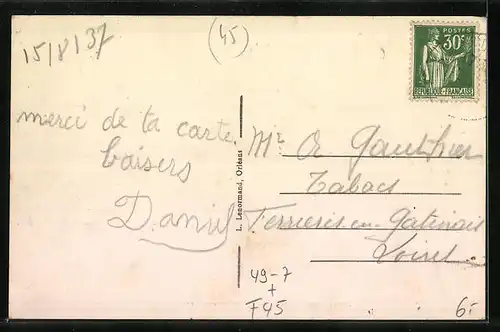 15/8/37
(45)
POSTES
30c
REPUBLIQUE FRANÇAISE
merci de ta carte
baisers
Daniel
L. Lenormand, Orléans
Mr A Gauthier
Tabacs
Ferrieres-en-Gatinais
Loiret
49-7
+
F45
6-